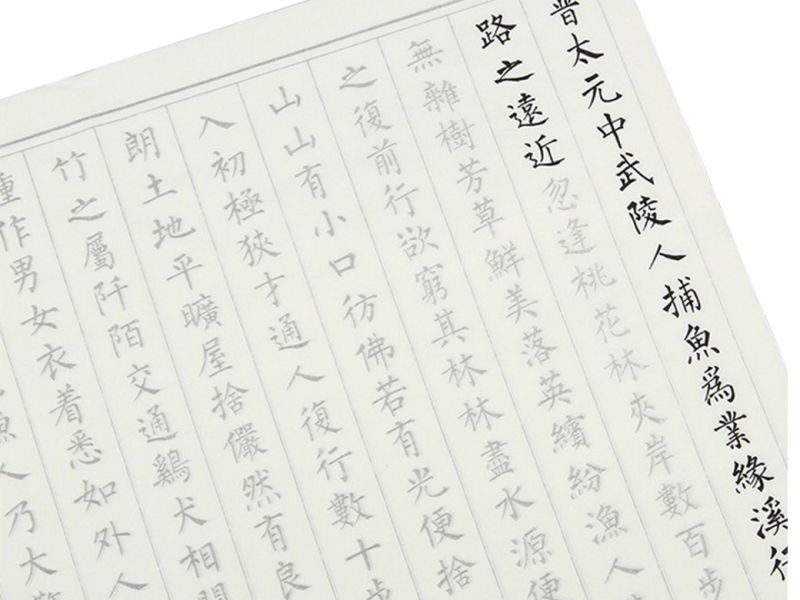 晉太元中武陵人捕魚為業緣溪行
路之遠近忽逢桃花林夾岸數百步
無雜樹芳草鮮美落英繽紛漁人
之復前行欲窮其林林盡水源便
山山有小口彷彿若有光便捨
入初極狹才通人復行數十步
朗土地平曠屋舍儼然有良
竹之屬阡陌交通鷄犬相聞
作男女衣着悉如外人
人乃大